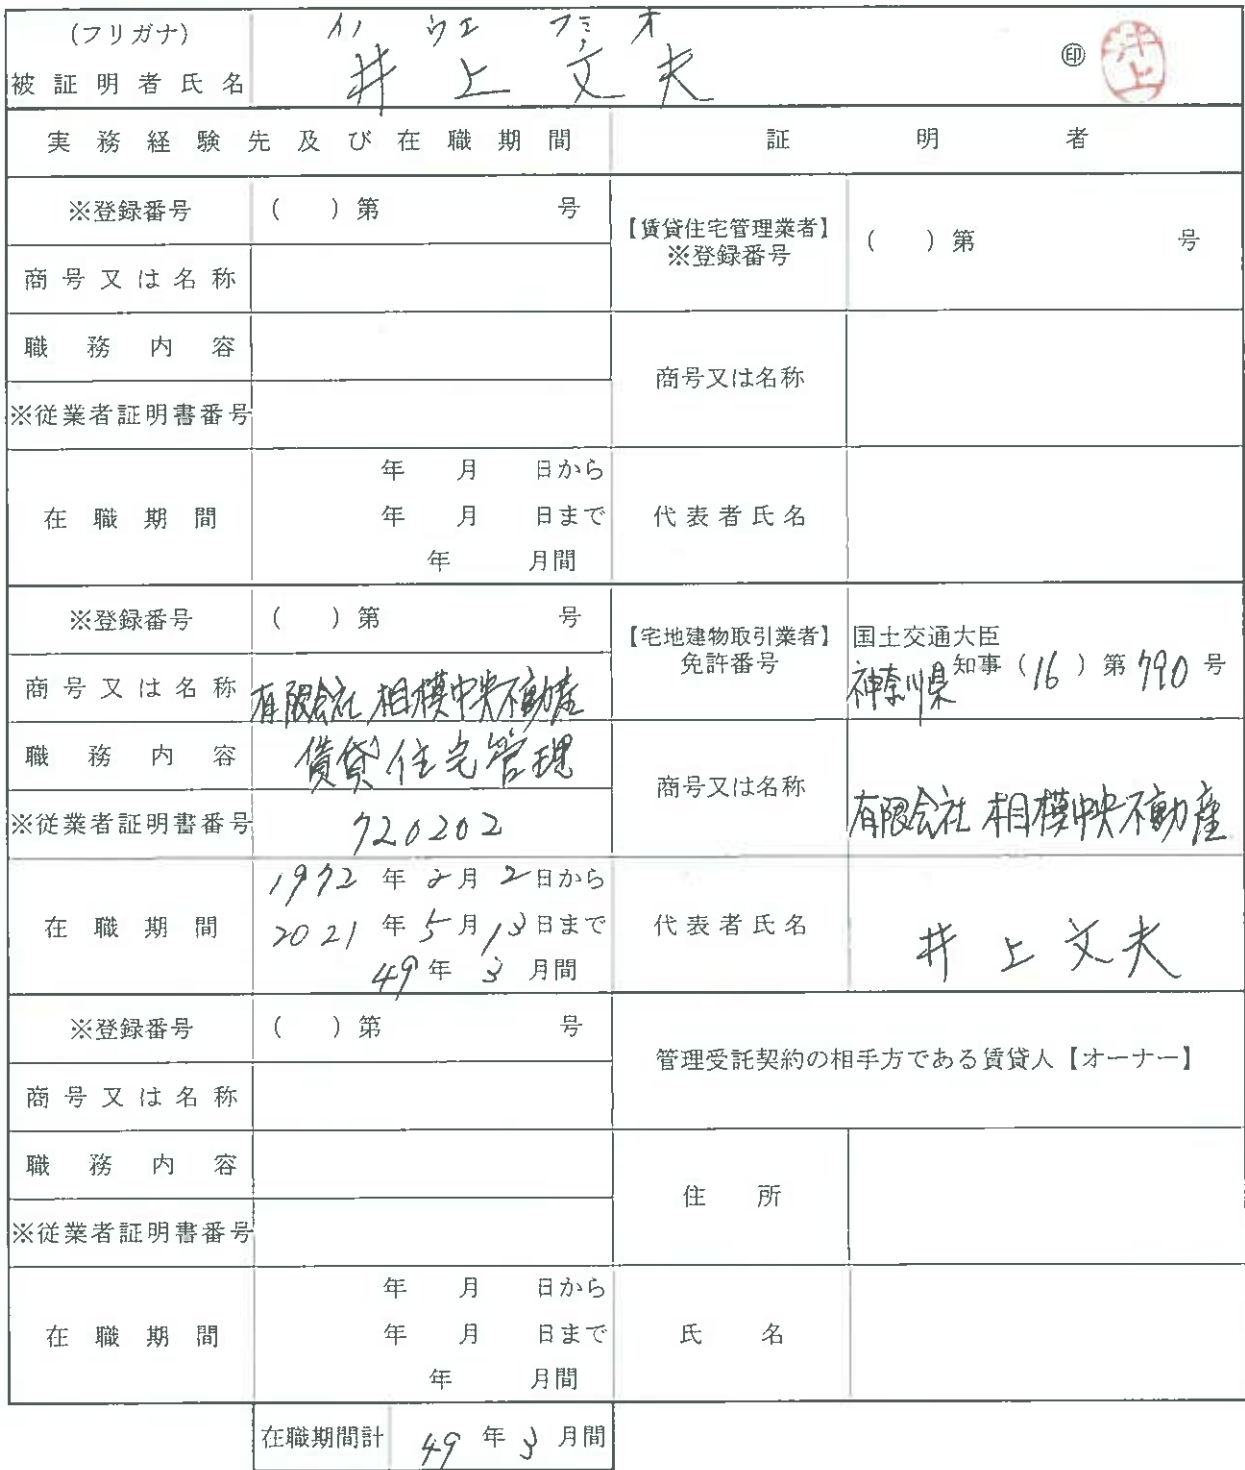 (フリガナ) イノ ウエ フミ オ
被証明者氏名 井上文夫 ㊞ 井上
実務経験先及び在職期間 証明者
※登録番号 ( ) 第 号
商号又は名称
職務内容
※従業者証明書番号
在職期間
年 月 日から
年 月 日まで
年 月間
【賃貸住宅管理業者】
※登録番号
( ) 第 号
商号又は名称
代表者氏名
※登録番号 ( ) 第 号
商号又は名称 有限会社 相模中央不動産
職務内容 賃貸住宅管理
※従業者証明書番号 720202
在職期間
1972 年 2 月 2 日から
2021 年 5 月 13 日まで
49 年 3 月間
【宅地建物取引業者】
免許番号
国土交通大臣
神奈川県 知事 ( 16 ) 第 790 号
商号又は名称 有限会社 相模中央不動産
代表者氏名 井上文夫
※登録番号 ( ) 第 号
商号又は名称
職務内容
※従業者証明書番号
在職期間
年 月 日から
年 月 日まで
年 月間
管理受託契約の相手方である賃貸人【オーナー】
住所
氏名
在職期間計 49 年 3 月間